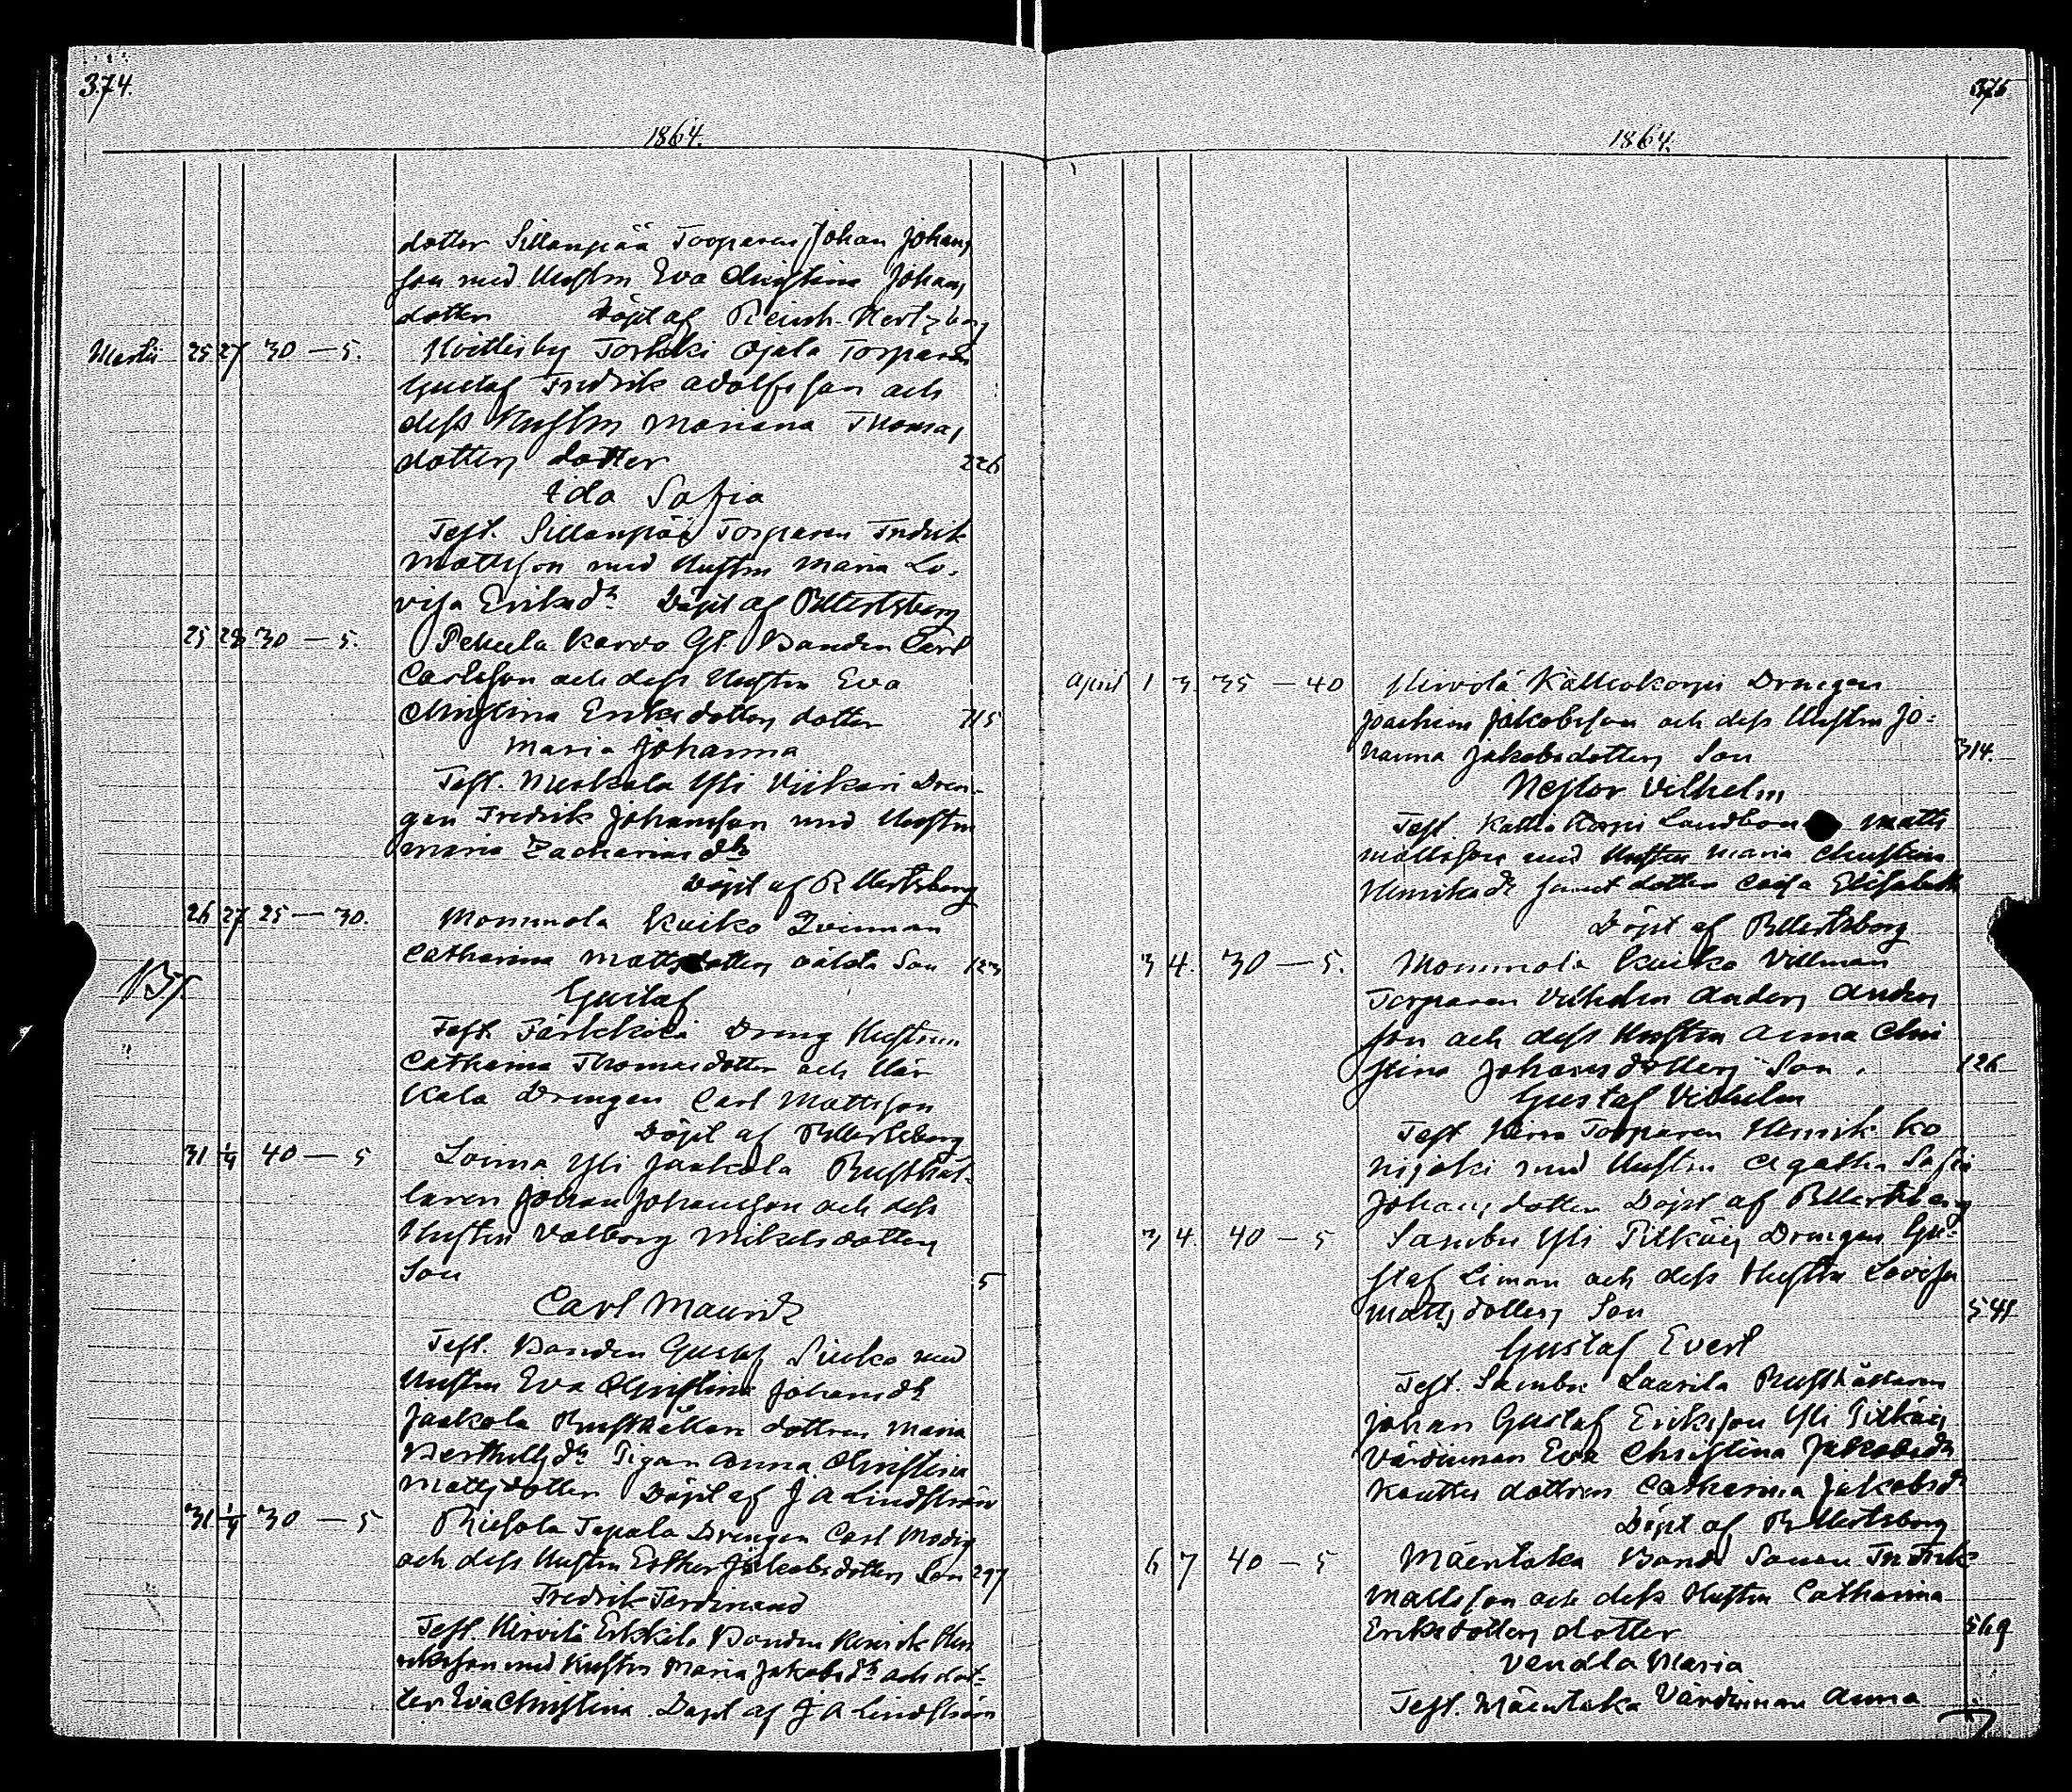 374.
1864.
dotter Sillanpää Torparen Johan Johans
son med Hustrun Eva Christina Johans
dotter Döpt af Reinh. Hertzberg
Martii 25 27 30 — 5. Torkki Ojala Torparen
Gustaf Fredrik Adolfsson och
dess Hustru Mariana Thomas
dotters dotter 226
Ida Sofia
Test. Sillanpää Torparen Fredrik
Mattsson med Hustru Maria Lo-
visa Eriksdr Döpt af R Hertzberg
25 28 30 — 5. Pekula Karvo Gl. Bonden Carl
Carlsson och dess Hustru Eva
Christina Eriksdotters dotter 715
Maria Johanna
Test. Yli Viikari Dren-
gen Fredrik Johansson med Hustru
Maria Zachariasdr
Döpt af R Hertzberg
26 27 25 — 30. Mommola Kuiko Qvinnan
Catharina Mattsdotters oäkta Son 123
Gustaf
Test. Järkkilä Dreng Hustrun
Catharina Thomasdotter och Här
kala Drengen Carl Mattsson
Döpt af R Hertzberg
31 1/4 40 — 5 Loima Yli Jaakola Rusthål-
laren Johan Johansson och dess
Hustru Valborg Mikelsdotters
Son 5
Carl Maurits
Test. Bonden Gustaf Sinko med
Hustru Eva Christina Johansdr
Jaakola Rusthållare dottren Maria
Berthilsdr Pigan Anna Christina
Mattsdotter Döpt af J A Lindström
31 1/4 30 — 5 Tapala Drengen Carl Modig
och dess Hustru Esther Jakobsdotters Son 297
Fredrik Ferdinand
Test. Hirvilä Erkkilä Bonden Henrik Hen
riksson med Hustru Maria Jakobsdr och dot-
ter Eva Christina. Döpt af J A Lindström
375
1864.
April 1 3. 35 — 40 Hirvolä Kalliokorpi Drengen
Joachim Jakobsson och dess Hustru Jo-
hanna Jakobsdotters Son 314.
Nestor Vilhelm
Test. Kalliokorpi Landbon Matts
Mattsson med Hustru Maria Christina
Henriksdr samt dotter Caisa Elisabeth
Döpt af R Hertzberg
3 4. 30 — 5. Mommola Kuiko Villman
Torparen Vilhelm Anders Anders
son och dess Hustru Anna Chri
stina Johansdotters Son. 126
Gustaf Vilhelm
Test Torparen Henrik Ko
nijoki med Hustru Agatha Sofia
Johansdotter Döpt af R Hertzberg
3 4. 40 — 5 Sambu Yli Pilkäis Drengen Gu-
staf Liman och dess Hustru Lovisa
Mattsdotters Son 541
Gustaf Evert
Test. Sambu Laurila Rusthållaren
Johan Gustaf Eriksson Yli Pilkäis
Värdinnan Eva Christina Jakobsdr
Kauttu dottren Catharina Jakobsdr
Döpt af R Hertzberg
6 7 40 — 5 Mäentaka Bonde Sonen Fredrik
Mattsson och dess Hustru Catharina
Eriksdotters dotter 569
Vendla Maria
Test. Mäentaka Värdinnan Anna